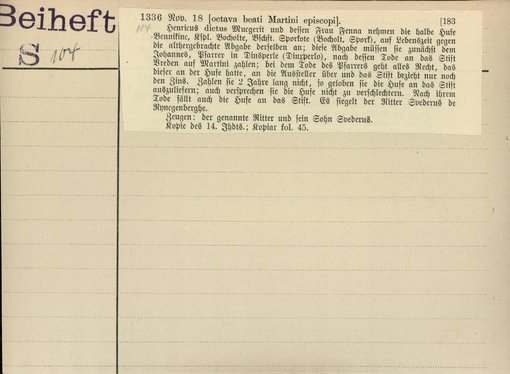 Beiheft
S 104
1336 Nov. 18 [octava beati Martini episcopi]. [183
104
Henricus dictus Muegerit und dessen Frau Fenna nehmen die halbe Hufe
Bennikinc, Kspl. Bocholte, Bschft. Sporkote (Bocholt, Spork), auf Lebenszeit gegen
die althergebrachte Abgabe derselben an; diese Abgabe müssen sie zunächst dem
Johannes, Pfarrer in Dinsperle (Dinxperlo), nach dessen Tode an das Stift
Vreden auf Martini zahlen; bei dem Tode des Pfarrers geht alles Recht, das
dieser an der Hufe hatte, an die Aussteller über und das Stift bezieht nur noch
den Zins. Zahlen sie 2 Jahre lang nicht, so geloben sie die Hufe an das Stift
auszuliefern; auch versprechen sie die Hufe nicht zu verschlechtern. Nach ihrem
Tode fällt auch die Hufe an das Stift. Es siegelt der Ritter Svederus de
Rynegenberghe.
Zeugen: der genannte Ritter und sein Sohn Svederus.
Kopie des 14. Jhdts.; Kopiar fol. 45.